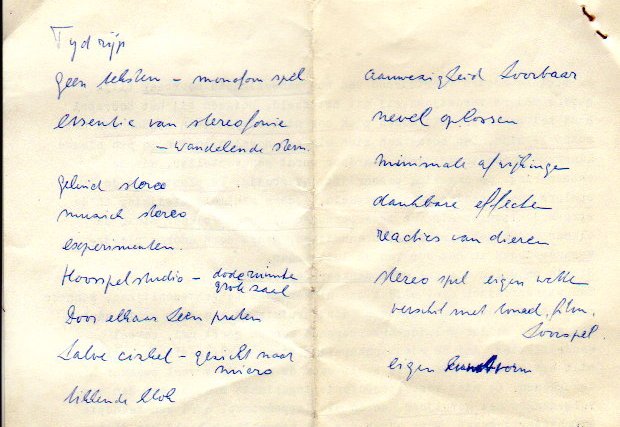 Tijdrijp
geen teksten - monofoon spel
essentie van stereofonie
- wandelende stem.
geluid stereo
muziek stereo
experimenten.
Hoorspelstudio - dode ruimte
grote zaal
Door elkaar heen praten
halve cirkel - gezicht naar
micro
tikkende klok
aanwezigheid hoorbaar
nevel oplossen
minimale afwijkingen
dankbare effecten
reacties van dieren
stereo spel eigen wetten
verschil met toneel, film,
hoorspel
eigen kunstvorm